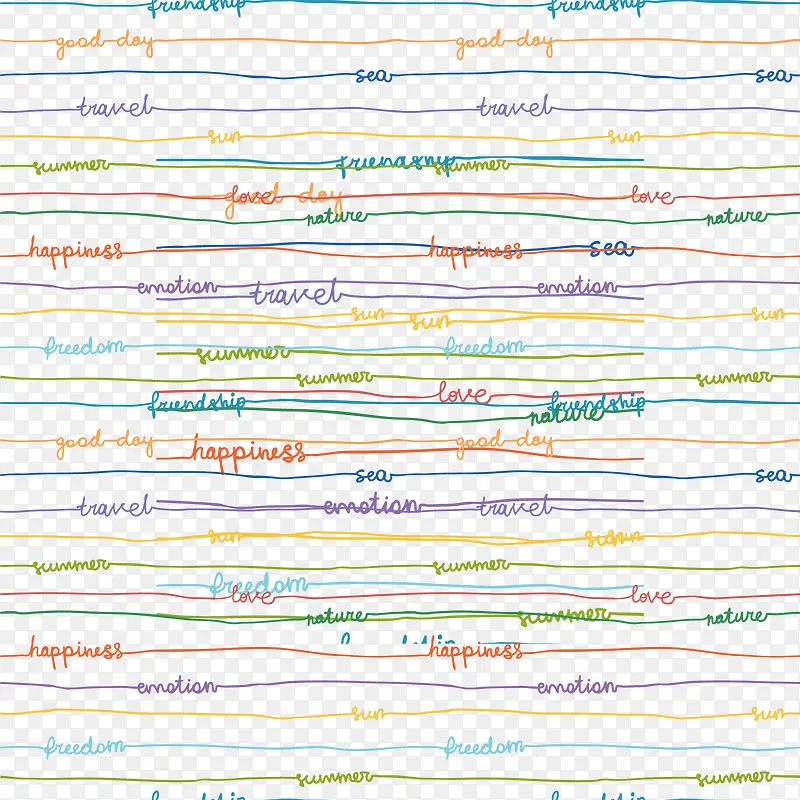 friendship friendship
good day good day
sea sea
travel travel
sun sun
friendship
summer summer
love good day love
nature nature
happiness happiness sea
emotion emotion
travel
sun sun
sun
freedom freedom
summer
summer summer
love
friendship friendship
nature
good day good day
happiness
sea sea
travel emotion travel
sun sun sun
summer summer
freedom
love love
nature summer nature
friendship
happiness happiness
emotion emotion
sun sun
freedom freedom
summer summer
friendship friendship